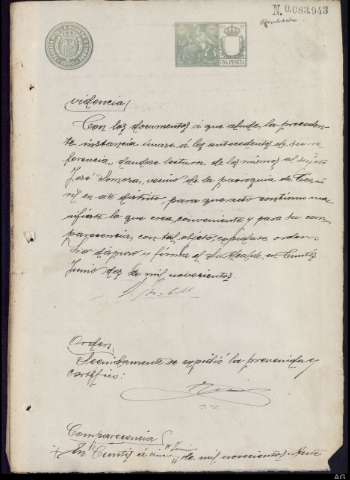 N. 0.083.943
UNA PESETA
videncia/
Con los documentos á que alude la preceden-
te instancia únase á los antecedentes de su re-
ferencia, dandose lectura de los mismos al
José vecino de la parroquia de
en este distrito, para que acto continuo ma-
nifieste lo que crea conveniente y para su com-
parecencia con tal objeto, expidase orden.
Lo dispuso y firma el Sr. Alcalde en Cuntis
Junio dos de mil novecientos.
Orden/
Seguidamente se expidió la prevenida y
certifico:
Comparecencia/
En Cuntis á de mil novecientos